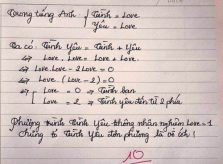 Trong tiếng Anh { Tình = Love
Yêu = Love
Ta có: Tình Yêu = Tình + Yêu
⇔ Love. Love = Love + Love.
⇔ Love.Love - 2Love = 0
⇔ Love (Love - 2) = 0
⇔ [ Love = 0 ⇔ Tình bạn
Love = 2 ⇔ Tình yêu đến từ 2 phía
Phương trình Tình Yêu không nhận nghiệm Love = 1
chứng tỏ Tình Yêu đơn phương là vô ích!
10